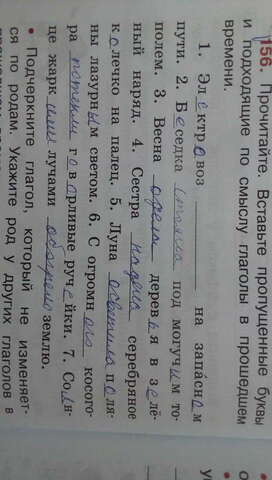 156. Прочитайте. Вставьте пропущенные буквы
и подходящие по смыслу глаголы в прошедшем
времени.
1. Электровоз ______ на запасном
пути. 2. Беседка стояла под могучим то-
полем. 3. Весна одела деревья в зелё-
ный наряд. 4. Сестра надела серебряное
колечко на палец. 5. Луна осветила поля-
ны лазурным светом. 6. С огромного косого-
ра потекли говорливые ручейки. 7. Солн-
це жаркими лучами обогрело землю.
• Подчеркните глагол, который не изменяет-
ся по родам. Укажите род у других глаголов в